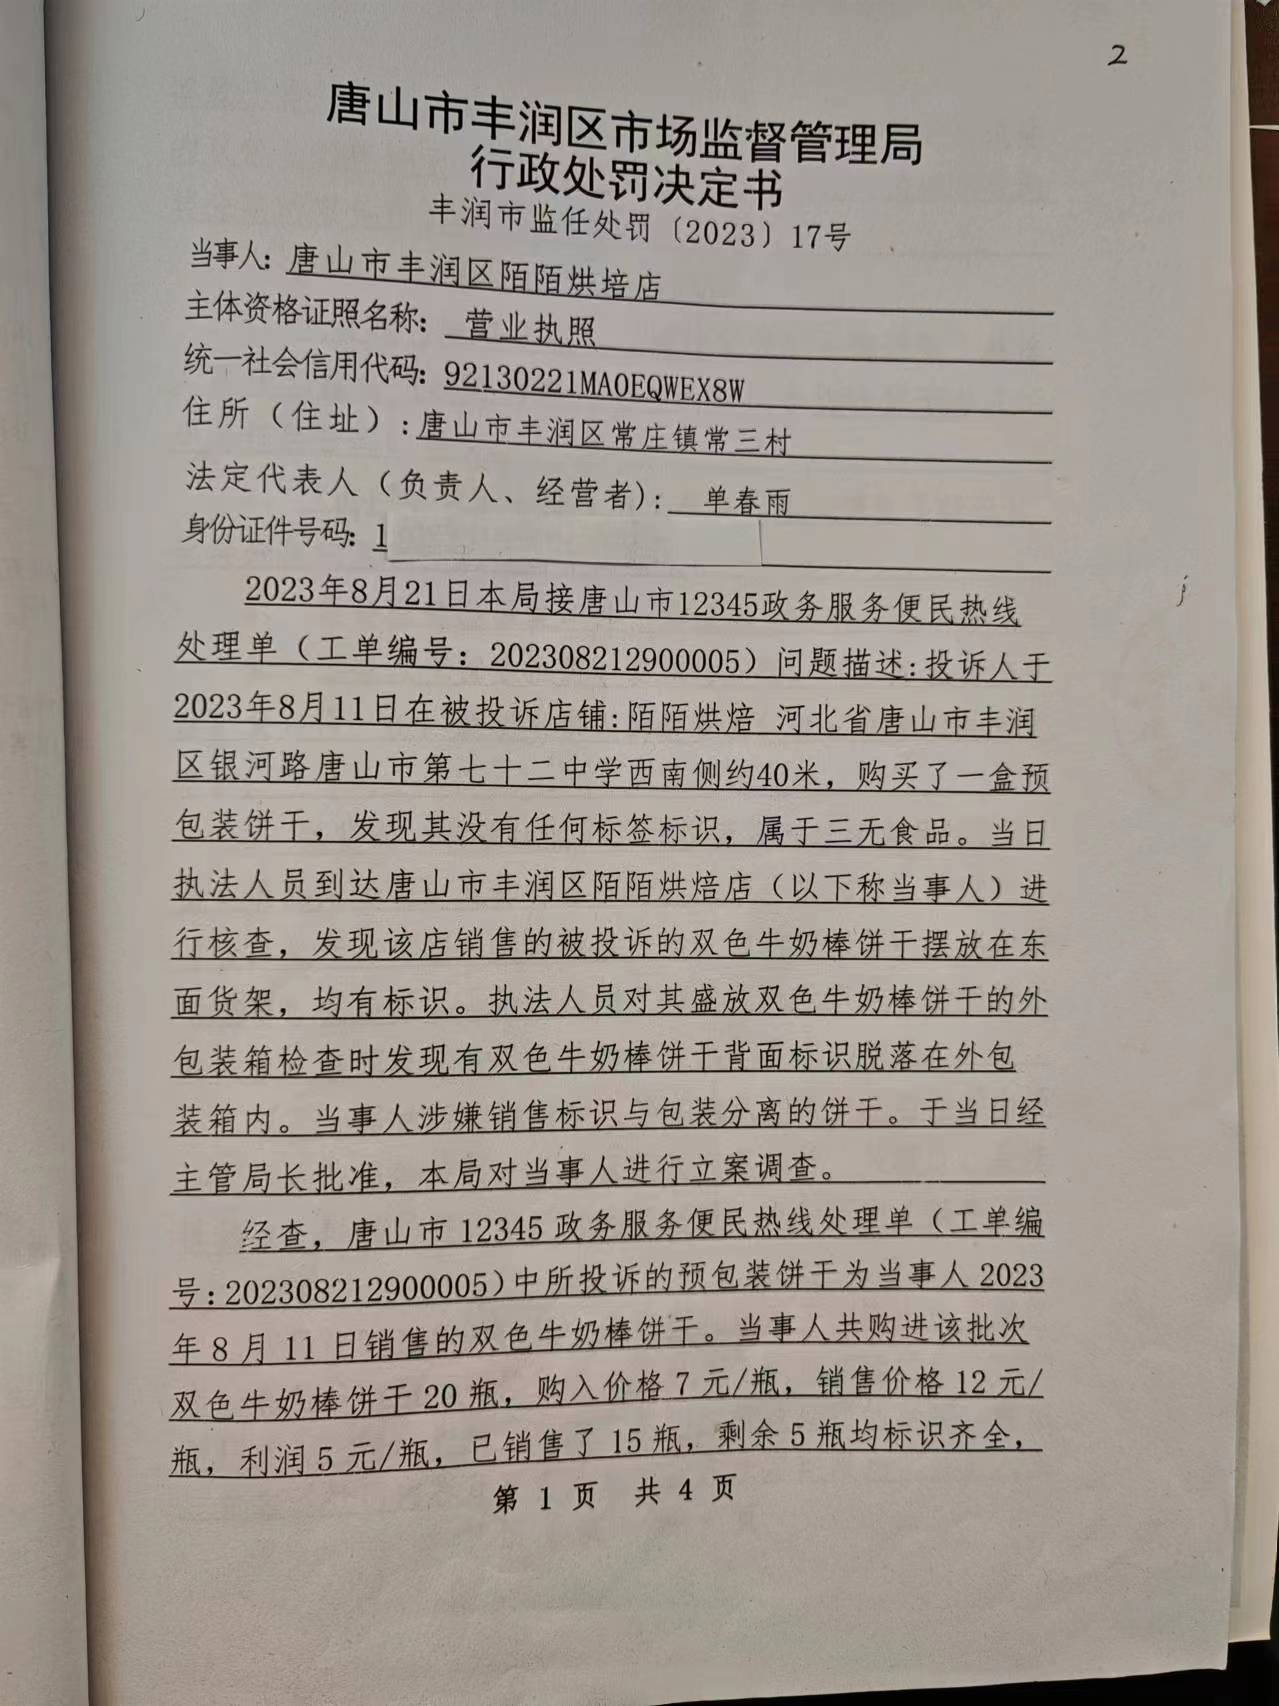 2
唐山市丰润区市场监督管理局
行政处罚决定书
丰润市监任处罚〔2023〕17号
当事人：唐山市丰润区陌陌烘培店
主体资格证照名称：营业执照
统一社会信用代码：92130221MA0EQWEX8W
住所（住址）：唐山市丰润区常庄镇常三村
法定代表人（负责人、经营者）：单春雨
身份证件号码：1
2023年8月21日本局接唐山市12345政务服务便民热线
处理单（工单编号：202308212900005）问题描述：投诉人于
2023年8月11日在被投诉店铺：陌陌烘焙 河北省唐山市丰润
区银河路唐山市第七十二中学西南侧约40米，购买了一盒预
包装饼干，发现其没有任何标签标识，属于三无食品。当日
执法人员到达唐山市丰润区陌陌烘焙店（以下称当事人）进
行核查，发现该店销售的被投诉的双色牛奶棒饼干摆放在东
面货架，均有标识。执法人员对其盛放双色牛奶棒饼干的外
包装箱检查时发现有双色牛奶棒饼干背面标识脱落在外包
装箱内。当事人涉嫌销售标识与包装分离的饼干。于当日经
主管局长批准，本局对当事人进行立案调查。
经查，唐山市12345政务服务便民热线处理单（工单编
号：202308212900005）中所投诉的预包装饼干为当事人2023
年8月11日销售的双色牛奶棒饼干。当事人共购进该批次
双色牛奶棒饼干20瓶，购入价格7元/瓶，销售价格12元/
瓶，利润5元/瓶，已销售了15瓶，剩余5瓶均标识齐全，
第 1 页 共 4 页